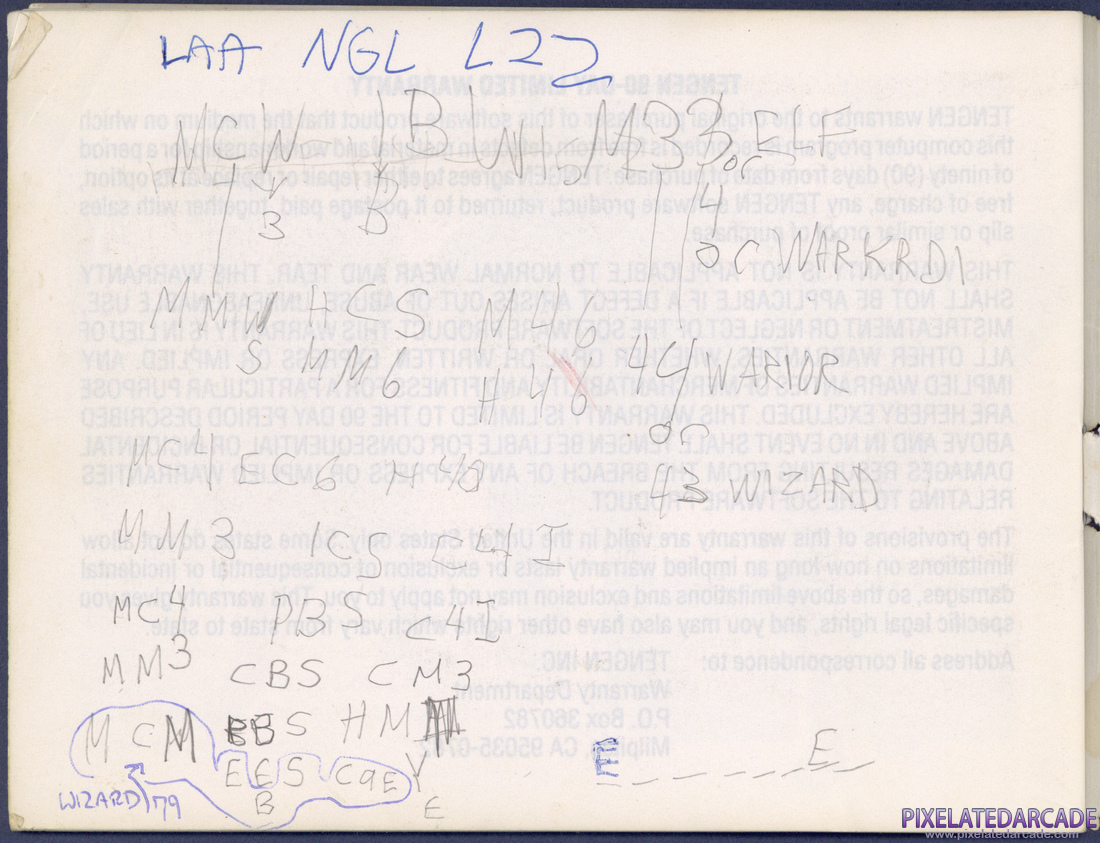 LAA NGL L22
B
B
DC WARKRD1
MMW HSS N46
S MM6 H46
44 WARIOR
HC4 EC6 A48
43 WIZARD
MM3 1CS C4I
MC4 PBS C4I
MM3 CBS CM3
MCM BBS HM
EES C9E
B
E
WIZARD 79
E E
TENGEN 90-DAY LIMITED WARRANTY
TENGEN warrants to the original purchaser of this software product that the medium on which
this computer program is recorded is free from defects in material and workmanship for a period
of ninety (90) days from date of purchase. TENGEN agrees to either repair or replace at its option,
free of charge, any TENGEN software product, returned to it postage paid, together with sales
slip or similar proof of purchase.
THIS WARRANTY IS NOT APPLICABLE TO NORMAL WEAR AND TEAR. THIS WARRANTY
SHALL NOT BE APPLICABLE IF A DEFECT ARISES OUT OF ABUSE, UNREASONABLE USE,
MISTREATMENT OR NEGLECT OF THE SOFTWARE PRODUCT. THIS WARRANTY IS IN LIEU OF
ALL OTHER WARRANTIES, WHETHER ORAL OR WRITTEN, EXPRESS OR IMPLIED. ANY
IMPLIED WARRANTIES OF MERCHANTABILITY AND FITNESS FOR A PARTICULAR PURPOSE
ARE HEREBY EXCLUDED. THIS WARRANTY IS LIMITED TO THE 90 DAY PERIOD DESCRIBED
ABOVE AND IN NO EVENT SHALL TENGEN BE LIABLE FOR CONSEQUENTIAL OR INCIDENTAL
DAMAGES RESULTING FROM THE BREACH OF ANY EXPRESS OR IMPLIED WARRANTIES
RELATING TO THE SOFTWARE PRODUCT.
The provisions of this warranty are valid in the United States only. Some states do not allow
limitations on how long an implied warranty lasts or exclusion of consequential or incidental
damages, so the above limitations and exclusion may not apply to you. This warranty gives you
specific legal rights, and you may also have other rights which vary from state to state.
Address all correspondence to: TENGEN INC.
Warranty Department
P.O. Box 360782
Milpitas, CA 95035-0782
PIXELATEDARCADE
www.pixelatedarcade.com